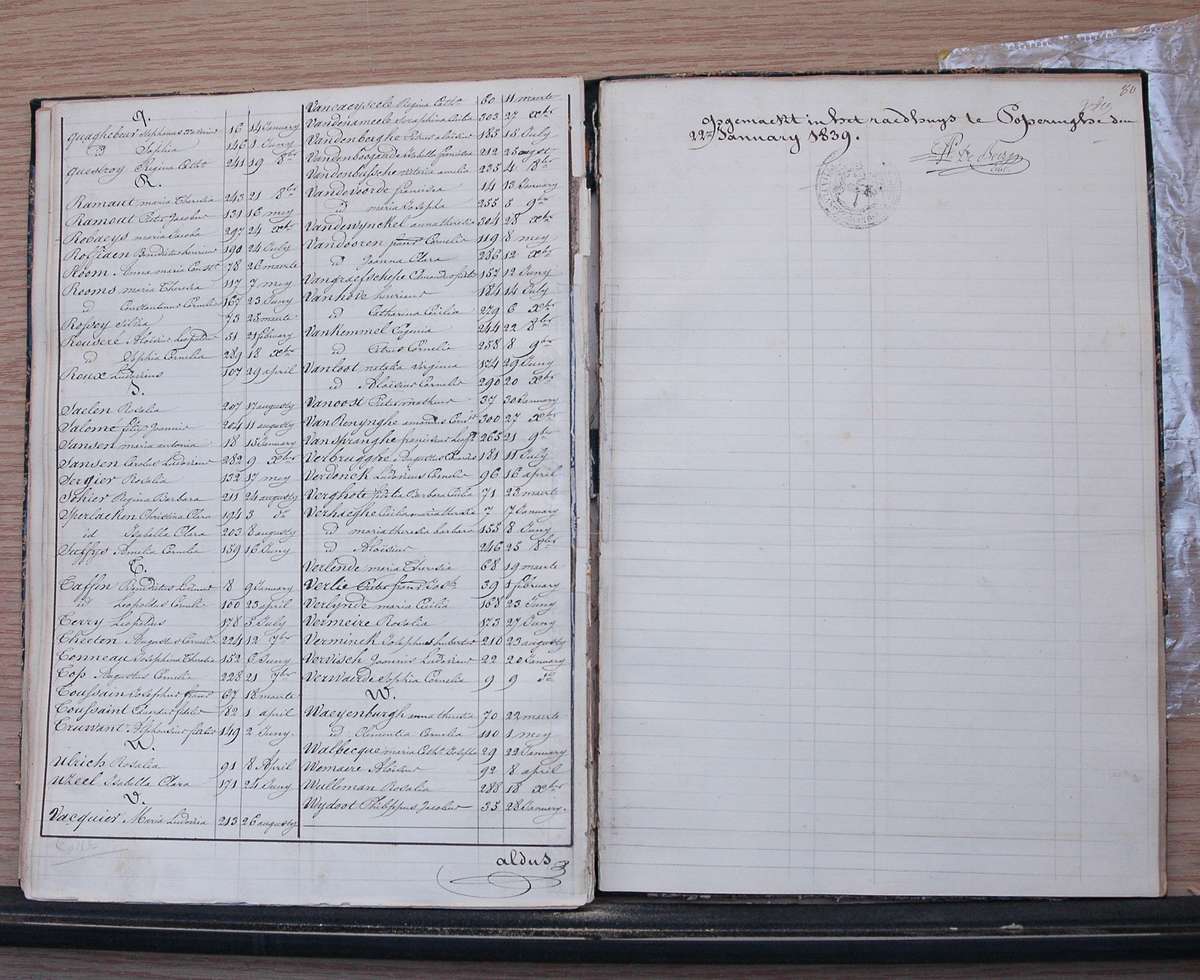 Q.
Quaghebeur Stephanus 16 14 January
id Sophia 146 1 Juny
Questroy Regina Cath. 241 19 8bre
R.
Ramaut maria Theresia 243 21 8bre
Ramout Pieter Jacobus 131 16 mey
297 24 xbre
Benedictus henricus 190 24 July
Room Anna maria Const. 78 26 maerte
Rooms maria Theresia 117 7 mey
id Constantinus Corneli 167 23 Juny
Silvia 73 23 maerte
Rouseré Aloisius Leopold 51 21 february
id Sophia Cornelia 289 18 xbre
Roux Ludovicus 107 29 april
S.
Saelen Rosalia 207 17 augusty
Salome filip Joannes 204 11 augusty
Sansen maria antonia 18 15 January
Sansen Carolus Ludovicus 282 9 xbre
Sergier Rosalia 132 17 mey
Sohier Regina Barbara 211 24 augusty
Sperlaeken Christina Clara 194 3 do
id Isabella Clara 203 8 augusty
Suffys Amelia Cornelia 159 16 Juny
T.
Taffin Benedictus Leonard 8 9 January
id Leopoldus Corneli 100 23 april
Terry Leopoldus 178 5 July
Theeten Augustus Corneli 224 12 7bre
Tonneau Josephina Theresia 152 6 Juny
Top Augustus Cornelis 228 21 7bre
Toussain Josephus frans 67 18 maerte
Toussaint 82 1 april
Truwant Alphonsius 149 2 Juny.
U.
Ulrich Rosalia 91 8 April
Uzeel Isabella Clara 171 24 Juny
V.
Vacquier Maria Ludovica 213 26 augusty
Regina Cath. 60 11 maerte
Vandenameele Seraphina 303 27 xbre
Vandenberghe Petrus Aloisius 185 15 July
Vandenbogaerde Isabella francisca 212 25 augst
Vandenbussche Victoria amelia 235 4 8bre
Vandevoorde francisca 14 13 January
id maria Josepha 255 5 9bre
Vandewynckel anna theresia 304 28 xbre
Vandooren frans Cornelis 119 8 mey
id Joanna Clara 286 12 xbre
Vangraefschepe 157 12 Juny
Vanhove henricus 184 14 July
id Catharina Cecilia 279 6 xbre
Vankemmel Eugenia 244 22 8bre
id Petrus Cornelis 258 8 9bre
Vanloot natalia virginia 174 29 Juny
id Aloisius Cornelis 290 20 xbre
Vanoost Pieter mattheus 37 30 January
Van Renynghe amandus 300 27 xbre
Van Spranghe franciscus 265 21 9bre
Verbrugghe Augustus 181 11 July
Verdonck Ludovicus Cornelis 96 16 april
Verghote fidelia Barbara Julia 71 22 maerte
Verhaeghe Cecilia maria theresia 7 7 January
id maria theresia barbara 155 8 Juny
id Aloisius 246 25 8bre
Verlende maria Theresia 68 19 maerte
Verlie Pieter frans Joseph 39 1 february
Verlynde maria Cecilia 168 23 Juny
Vermeire Rosalia 173 27 Juny
Verminck Josephus hubertus 210 23 augusty
Vervisch Joannes Ludovicus 22 20 January
Verwaerde Sophia Cornelia 9 9 do
W.
Waeyenburgh anna theresia 70 22 maerte
id Clementia Cornelia 110 1 mey
Walbecque maria Cath. Josepha 29 22 January
Womaere Aloisius 92 8 april
Wulleman Rosalia 288 18 xbre
Wydoot Philippus Jacobus 35 28 January.
aldus
80
opgemaekt in het raedhuys te Poperinghe den
22en January 1839.